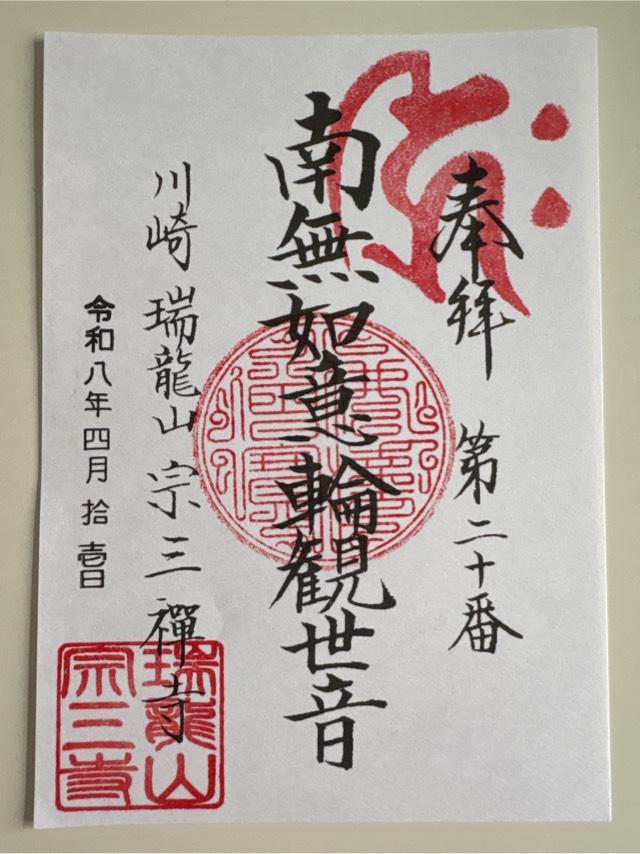 奉拜 第二十番
南無如意輪観世音
川崎 瑞龍山 宗三禪寺
令和八年四月拾壱日
瑞龍山
宗三寺